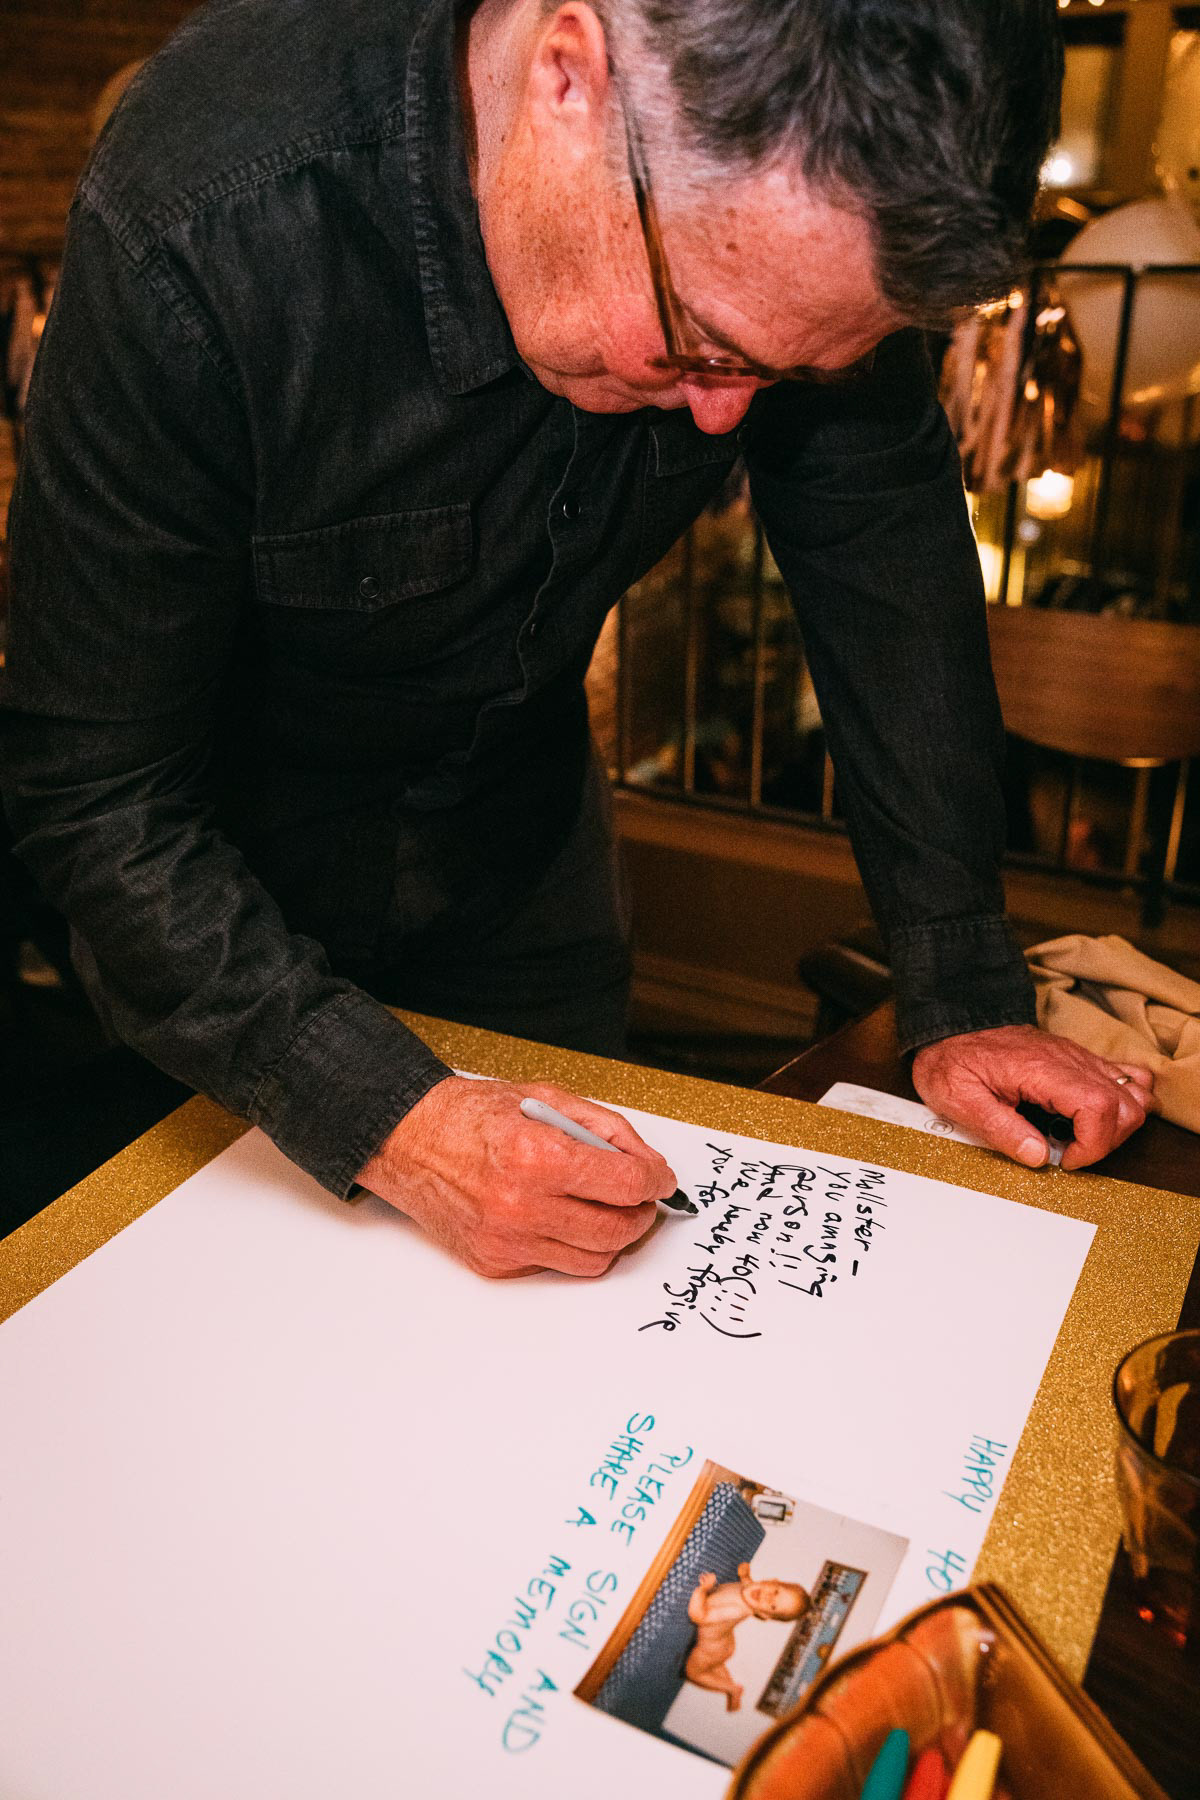 Mallster -
you amazing
person!!
And now 40(!!!)
We hereby forgive
you for
HAPPY 40
PLEASE SIGN AND
SHARE A MEMORY